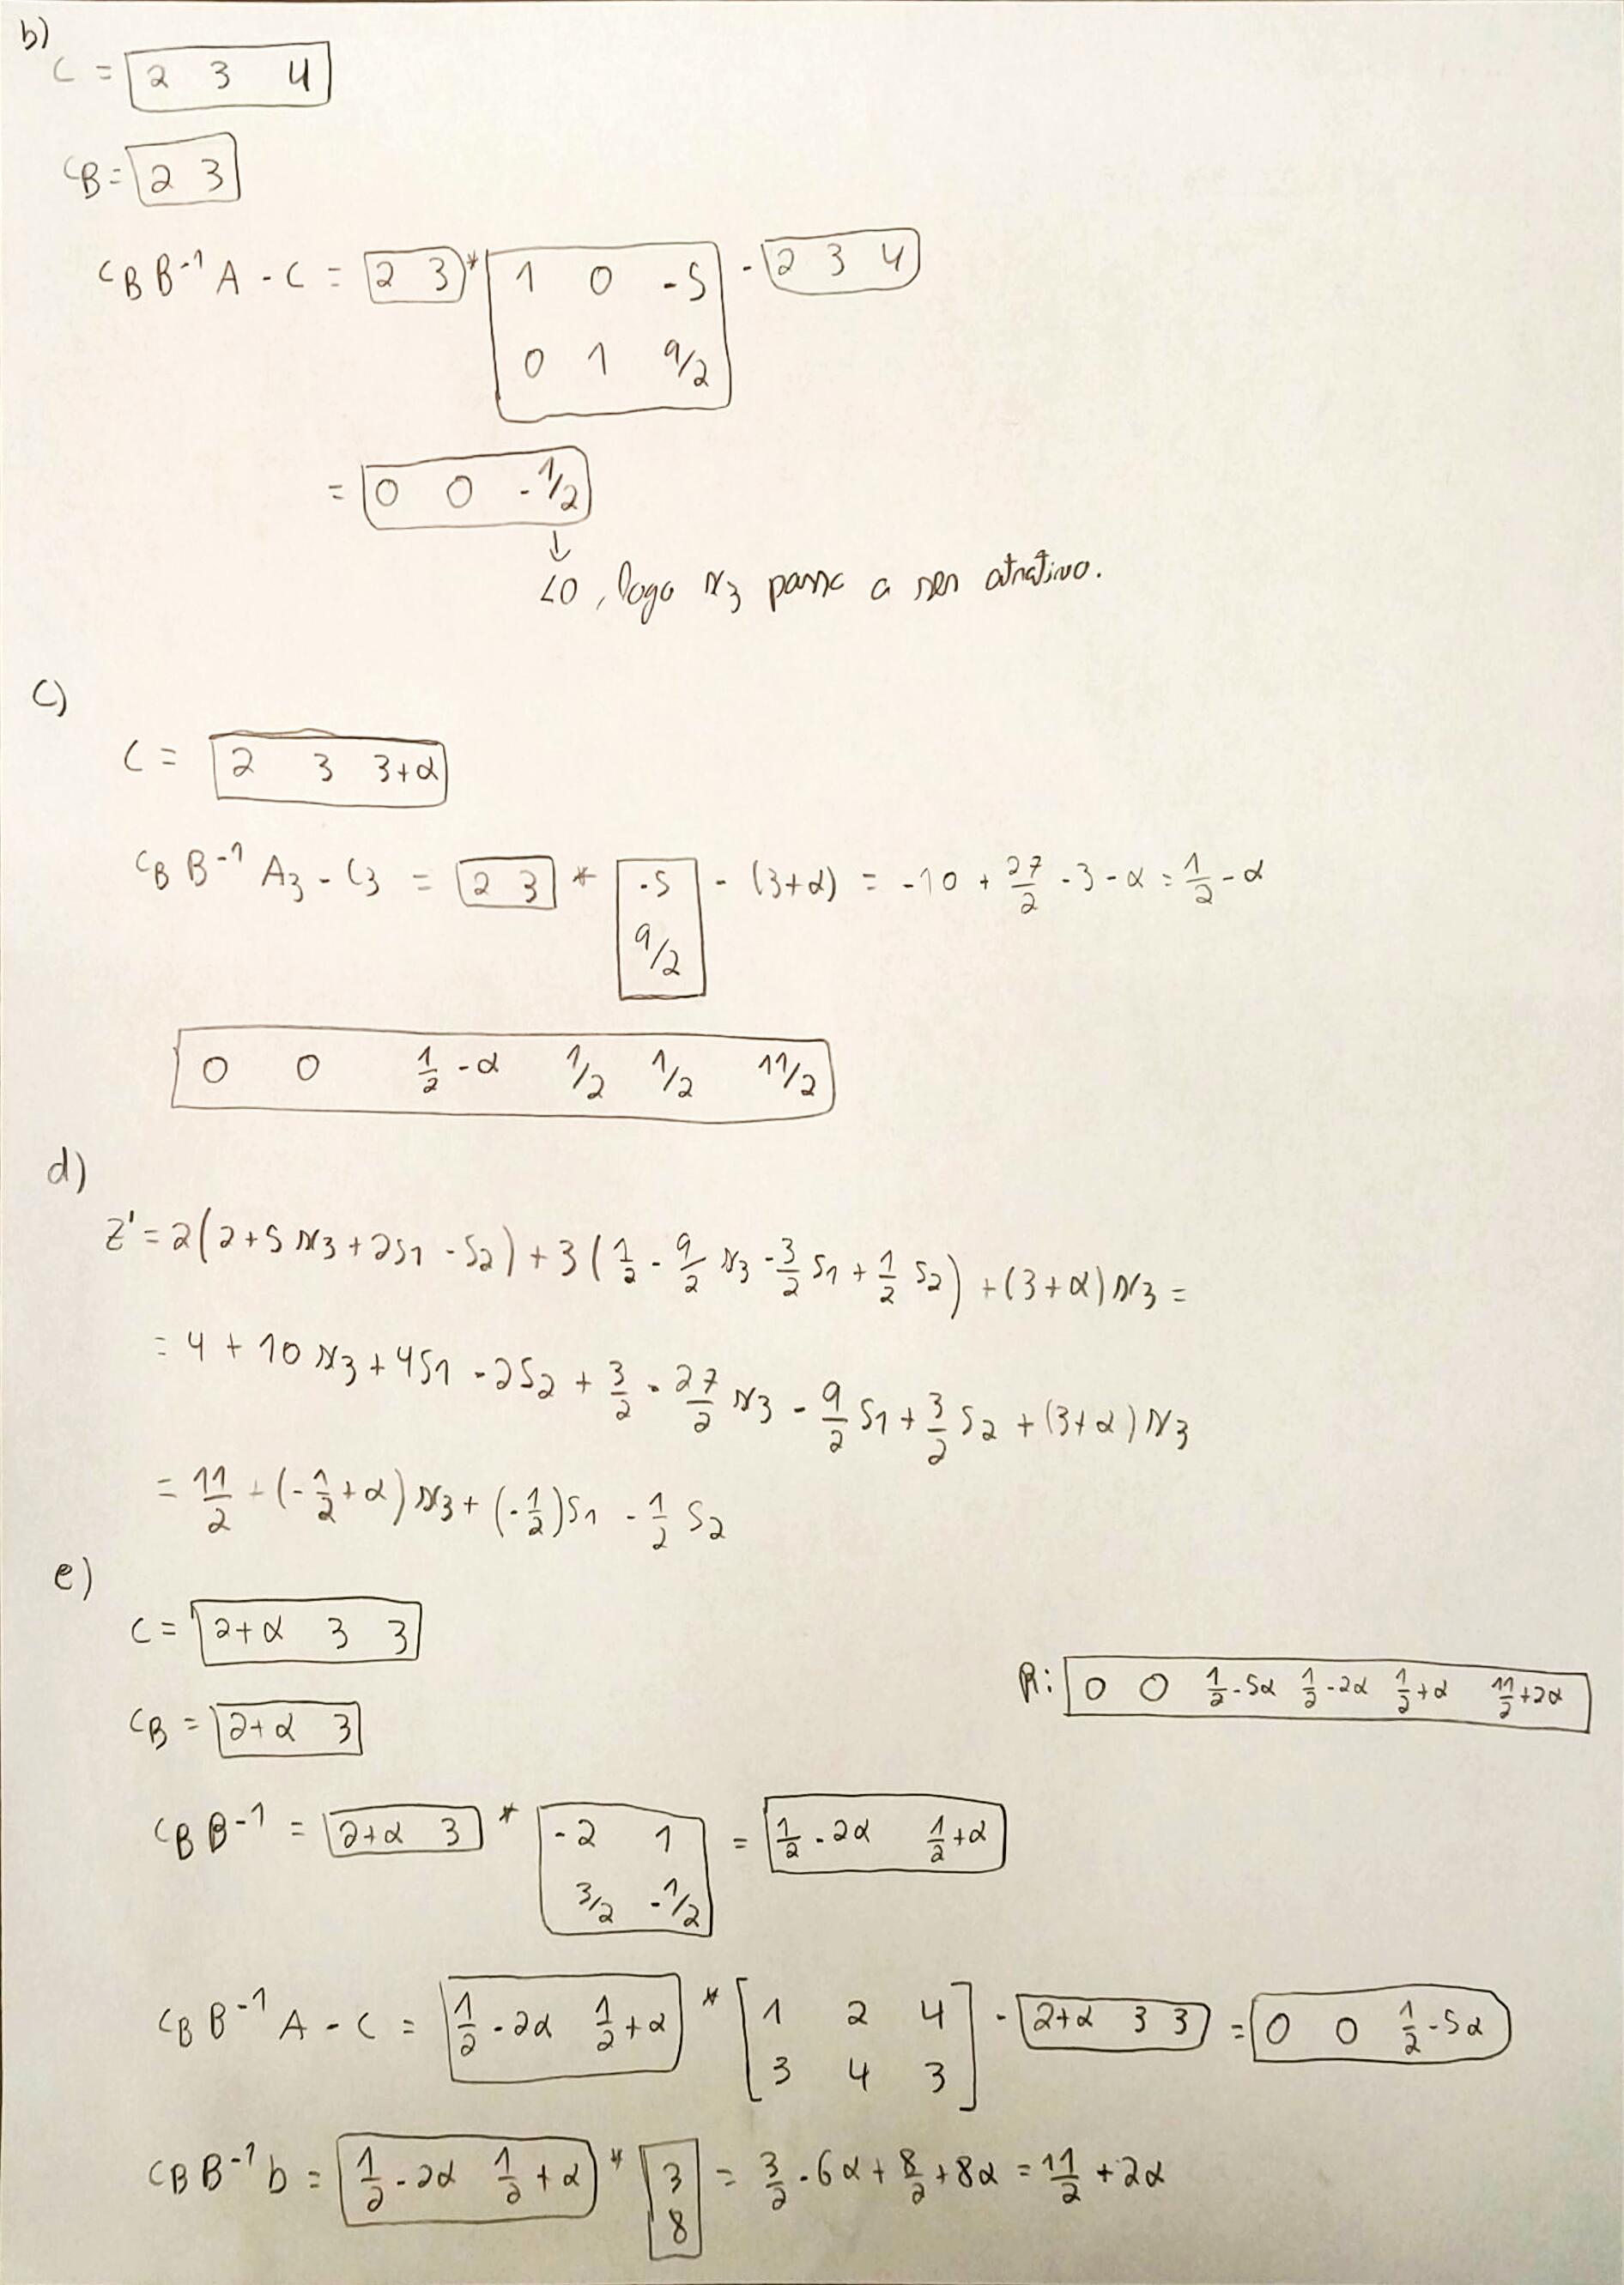 b)
C = [2 3 4]
CB = [2 3]
CB B⁻¹ A - C = [2 3] * [1 0 -5
0 1 9/2] - [2 3 4]
= [0 0 -1/2]
↓
<0, logo x3 passa a ser atrativo.
c)
C = [2 3 3+α]
CB B⁻¹ A3 - C3 = [2 3] * [-5
9/2] - (3+α) = -10 + 27/2 - 3 - α = 1/2 - α
[0 0 1/2 - α 1/2 1/2 11/2]
d)
Z' = 2(2+5x3+2s1 - s2) + 3(1/2 - 9/2 x3 - 3/2 s1 + 1/2 s2) + (3+α)x3 =
= 4 + 10x3 + 4s1 - 2s2 + 3/2 - 27/2 x3 - 9/2 s1 + 3/2 s2 + (3+α)x3
= 11/2 + (-1/2+α)x3 + (-1/2)s1 - 1/2 s2
e)
C = [2+α 3 3]
R: [0 0 1/2 - 5α 1/2 - 2α 1/2 + α 11/2 + 2α]
CB = [2+α 3]
CB B⁻¹ = [2+α 3] * [-2 1
3/2 -1/2] = [1/2 - 2α 1/2 + α]
CB B⁻¹ A - C = [1/2 - 2α 1/2 + α] * [1 2 4
3 4 3] - [2+α 3 3] = [0 0 1/2 - 5α]
CB B⁻¹ b = [1/2 - 2α 1/2 + α] * [3
8] = 3/2 - 6α + 8/2 + 8α = 11/2 + 2α